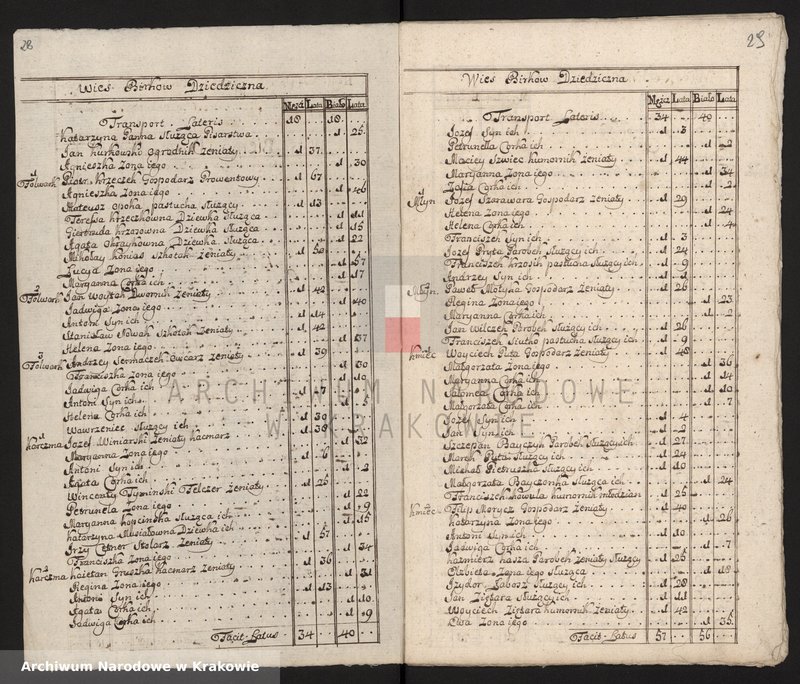 28
Wies Birkow Dziedziczna
Męzcz Lata Biało Lata
Transport Lateris 18 18
Katarzyna Panna Służąca Pisarstwa 1 25
Jan Kurkowski Ogrodnik żeniaty 1 37
Agnieszka Zona iego 1 30
1 Folwark Piotr Krzeczek Gospodarz Prowentowy 1 67
Agnieszka Zona iego 1 46
Mateusz Opoka pastucha Służący 1 13
Teressa Krzeczkowna Dziewka Służąca
Giertruda Dziewka Służąca 1 15
Agata Dziewka Służąca 1 22
Mikołay żeniaty
Łucya Zona iego 1 57
Maryanna Corka ich 1 17
2 Folwark Jan Woytas Dwornik żeniaty 1 42
Jadwiga Zona iego 1 40
Antoni Syn ich 1 14
Stanisław Nowak Szkotak żeniaty 1 42
Helena Zona iego 1 37
3 Folwark Andrzey Owczarz żeniaty 1 39
Franciszka Zona iego 1 30
Jadwiga Corka ich 1 10
Antoni Syn ich
Helena Corka ich
Wawrzeniec Służący ich 1 39
1 Karczma Jozef Winiarski żeniaty Kacmarz 1 38
Maryanna Zona iego 1 32
Antoni Syn ich 1 6
Agata Corka ich 1 2
Wincenty Tyminski Felczer żeniaty 1 25
Petrunela Zona iego 1 22
Maryanna Kopcinska Służąca ich 1 9
Katarzyna Musiałowna Dziewka ich 1 15
Jrzy Cetner Stolarz żeniaty 1 57
Franciszka Zona iego 1 34
2 Karczma Kaietan Gruszka Kacmarz żeniaty 1 36
Regina Zona iego 1 31
Antoni Syn ich 1 13
Agata Corka ich 1 10
Jadwiga Corka ich 1 9
Facit Latus 34 40
29
Wies Birkow Dziedziczna
Męzcz Lata Biało Lata
Transport Lateris 34 40
Jozef Syn ich 1 3
Petrunella Corka ich 1 2
Maciey Szwiec Kumornik żeniaty 1 44
Maryanna Zona iego 1 34
Zofia Corka ich 1 2
1 Młyn Jozef Szarawara Gospodarz żeniaty 1 29
Helena Zona iego 1 24
Helena Corka ich 1 4
Franciszek Syn ich 1 3
Jozef Pryta Parobek Służący ich 1 24
Franciszek Krzosik pastucha Służący ich 1 9
Andrzey Syn ich 1
2 Młyn Paweł Motyka Gospodarz żeniaty 1 26
Regina Zona iego 1 23
Maryanna Corka ich 1 2
Jan Wilczek Parobek Służący ich 1 26
Franciszek Siutko pastucha Służący ich 1 9
Kmieć Woyciech Puta Gospodarz żeniaty 1 48
Małgorzata Zona iego 1 36
Maryanna Corka ich 1 14
Salomea Corka ich 1 10
Małgorzata Corka ich 1 7
Jozef Syn ich 1 4
Jan Syn ich 1 2
Szczepan Bayczyk Parobek Służący ich 1 27
Marek Puta Służący ich 1 24
Michał Pietruszka Służący ich 1 10
Małgorzata Bayczonka Służąca ich 1 24
Franciszek Kowula Kumornik młodzian 1 25
Kmieć Filip Morycz Gospodarz żeniaty 1 40
Katarzyna Zona iego 1 26
Antoni Syn ich 1 10
Jadwiga Corka ich 1 7
Kazmierz Kasza Parobek żeniaty Służący 1 25
Elżbieta Zona iego Służąca
Jzydor Łabosz Służący ich 1 20
Jan Ziętara Służący ich 1 11
Woyciech Ziętara Kumornik żeniaty 1 42
Ewa Zona iego 1 35
Facit Latus 57 56
ARCHIWUM NARODOWE
W KRAKOWIE
Archiwum Narodowe w Krakowie